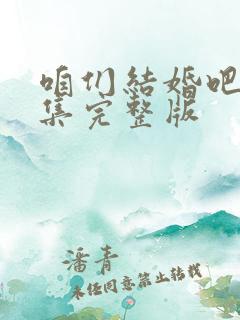 咱们结婚吧
集完整版
潘青
未经同意禁止转载